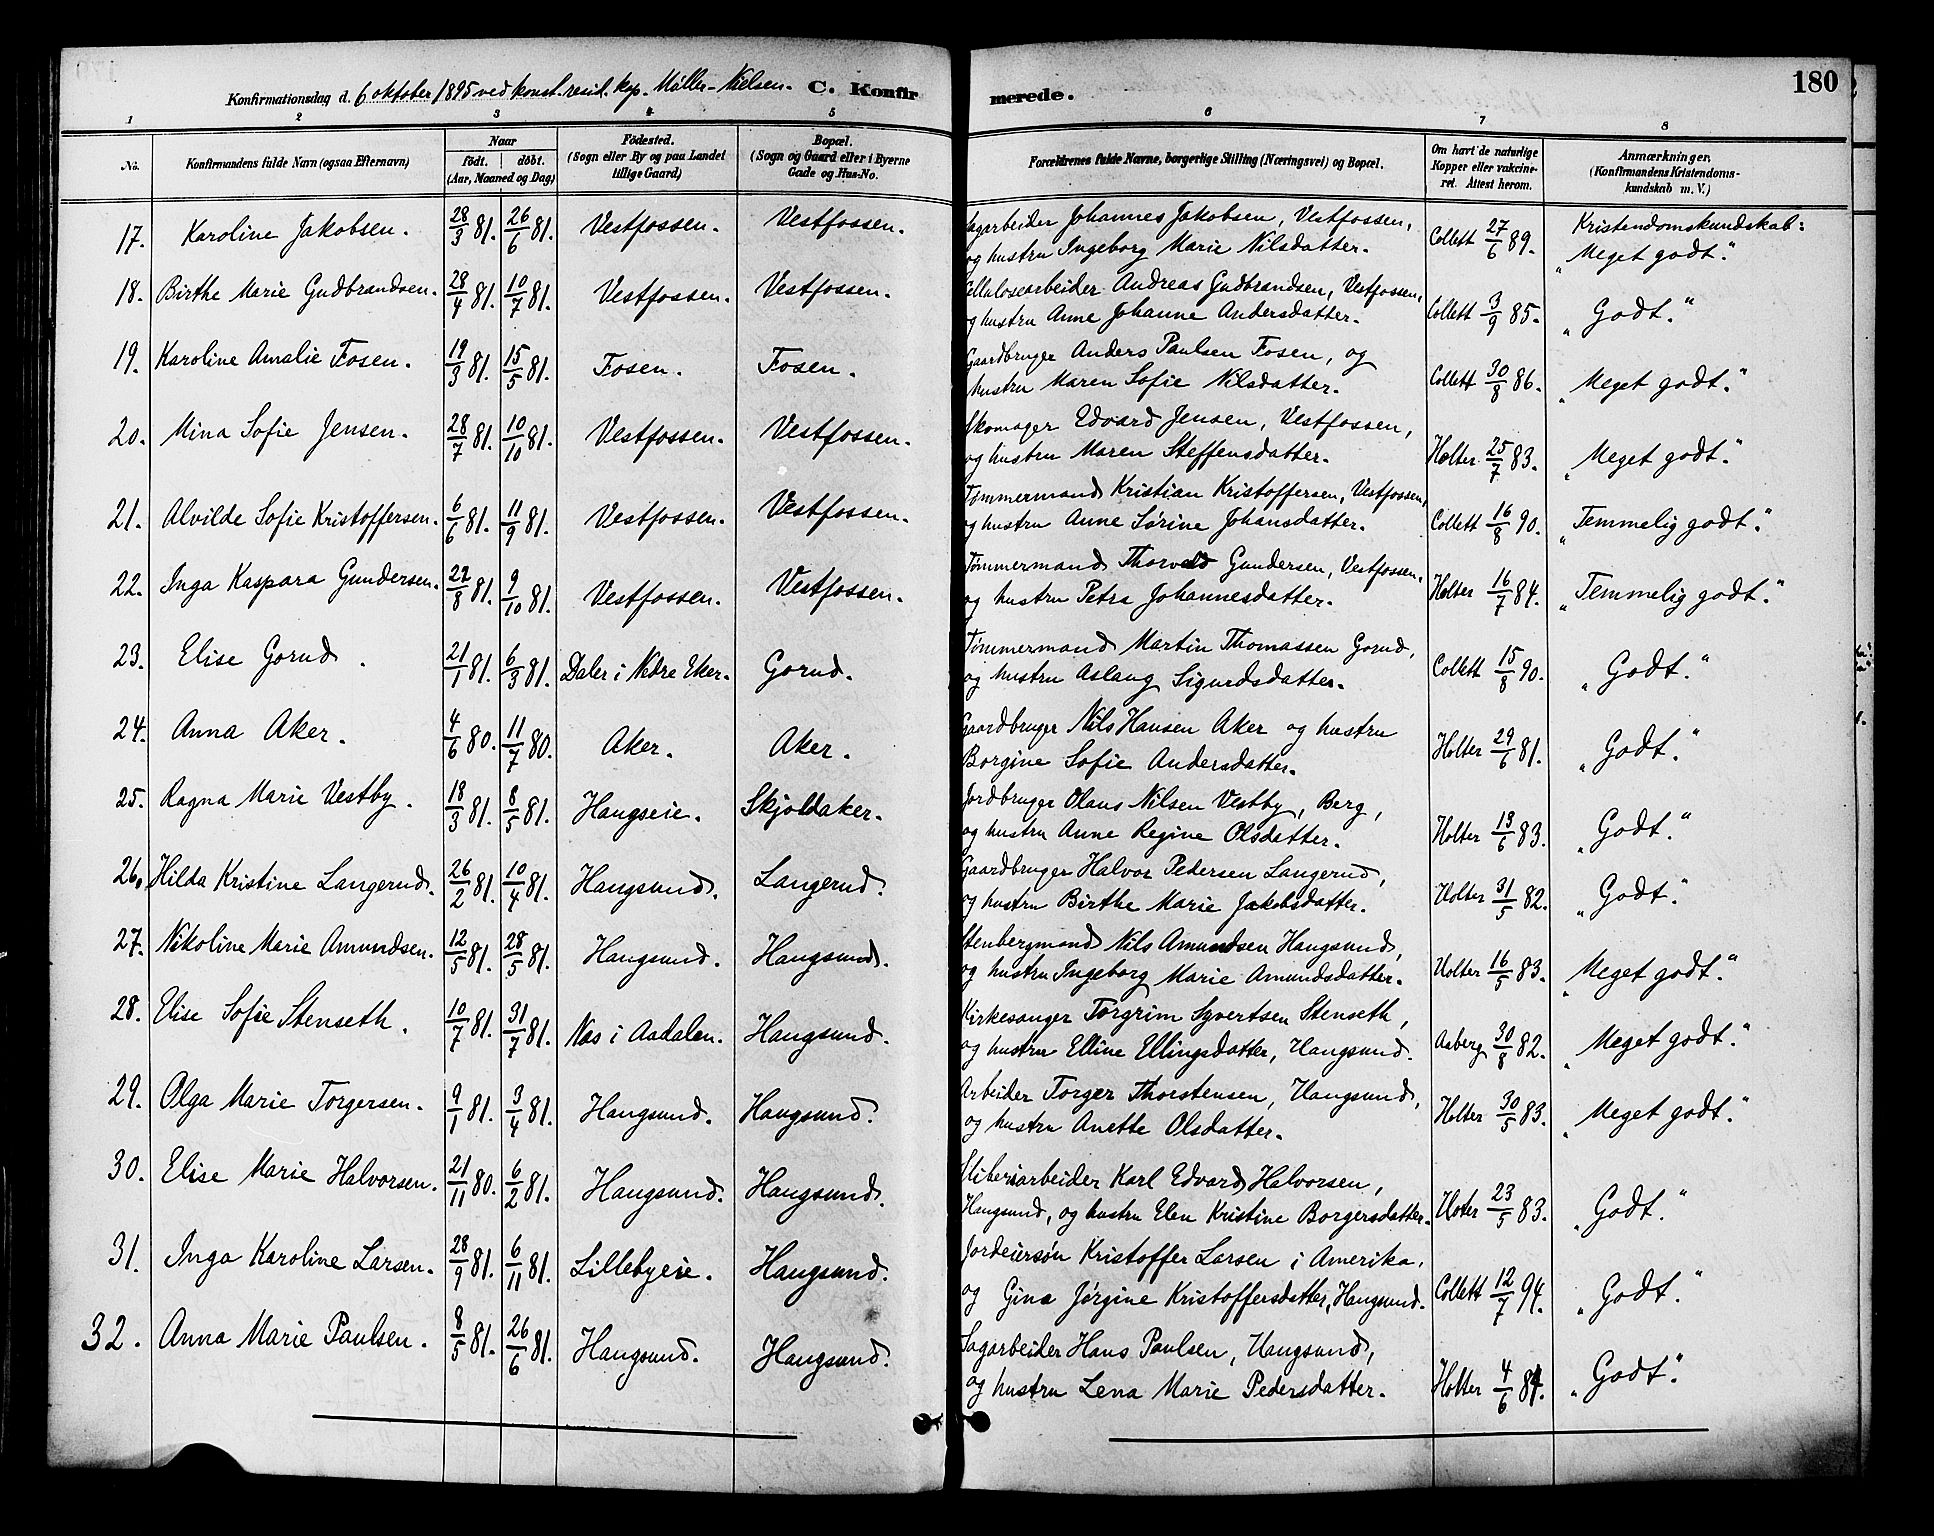 Konfirmationsdag d. 6 oktober 1895 ved konst. resid. kap. Møller-Nielsen. C. Konfirmerede. 180
1 2 3 4 5 6 7 8
No. Konfirmandens fulde Navn (ogsaa Efternavn) Naar födt. döbt. (Aar, Maaned og Dag) Födested. (Sogn eller By og paa Landet tillige Gaard) Bopæl. (Sogn og Gaard eller i Byerne Gade og Hus-No. Forældrenes fulde Navne, borgerlige Stilling (Næringsvei) og Bopæl. Om havt de naturlige Kopper eller vakcineret. Attest herom. Anmærkninger. (Konfirmandens Kristendomskundskab m. V.)
17. Karoline Jakobsen. 28/3 81. 26/6 81. Vestfossen. Vestfossen. Sagarbeider Johannes Jakobsen, Vestfossen, Collett 27/6 89. Kristendomskundskab:
og hustru Ingeborg Marie Nilsdatter. "Meget godt."
18. Birthe Marie Gudbrandsen. 28/4 81. 10/7 81. Vestfossen. Vestfossen. Cellulosearbeider Andreas Gudbrandsen, Vestfossen, Collett 3/9 85. "Godt."
og hustru Anne Johanne Andersdatter.
19. Karoline Amalie Fosen. 19/3 81. 15/5 81. Fosen. Fosen. Gaardbruger Anders Paulsen Fosen, og Collett 30/8 86. "Meget godt."
hustru Maren Sofie Nilsdatter.
20. Mina Sofie Jensen. 28/7 81. 10/10 81. Vestfossen. Vestfossen. Skomager Edvard Jensen, Vestfossen, Holter 25/7 83. "Meget godt."
og hustru Maren Steffensdatter.
21. Alvilde Sofie Kristoffersen. 6/6 81. 11/9 81. Vestfossen. Vestfossen. Tømmermand Kristian Kristoffersen, Vestfossen, Collett 16/8 90. "Temmelig godt."
og hustru Anne Sørine Johansdatter.
22. Inga Kaspara Gundersen. 22/8 81. 9/10 81. Vestfossen. Vestfossen. Tømmermand Thorvald Gundersen, Vestfossen, Holter 16/7 84. "Temmelig godt."
og hustru Petra Johannesdatter.
23. Elise Gorud. 21/1 81. 6/3 81. Daler i Nedre Eker. Gorud. Tømmermand Martin Thomassen Gorud, Collett 15/8 90. "Godt."
og hustru Aslaug Sigurdsdatter.
24. Anna Aker. 4/6 80. 11/7 80. Aker. Aker. Gaardbruger Nils Hansen Aker og hustru Holter 29/6 81. "Godt."
Borgine Sofie Andersdatter.
25. Ragna Marie Vestby. 18/3 81. 8/5 81. Haugseie. Skjoldaker. Jordbruger Olaus Nilsen Vestby, Berg, Holter 13/6 83. "Godt."
og hustru Anne Regine Olsdatter.
26. Hilda Kristine Langerud. 26/2 81. 10/4 81. Haugsund. Langerud. Gaardbruger Halvor Pedersen Langerud, Holter 31/5 82. "Godt."
og hustru Birthe Marie Jakobsdatter.
27. Nikoline Marie Amundsen. 12/5 81. 28/5 81. Haugsund. Haugsund. Stenbergmand Nils Amundsen Haugsund, Holter 16/5 83. "Meget godt."
og hustru Ingeborg Marie Amundsdatter.
28. Elise Sofie Stenseth. 10/7 81. 31/7 81. Næs i Aadalen. Haugsund. Kirkesanger Torgrim Syvertsen Stenseth, Aaberg 30/8 82. "Meget godt."
og hustru Elline Ellingsdatter, Haugsund.
29. Olga Marie Torgersen. 9/1 81. 3/4 81. Haugsund. Haugsund. Arbeider Torger Thorstensen, Haugsund, Holter 30/5 83. "Meget godt."
og hustru Anette Olsdatter.
30. Elise Marie Halvorsen. 21/11 80. 6/2 81. Haugsund. Haugsund. Sliberiarbeider Karl Edvard Halvorsen, Holter 23/5 83. "Godt."
Haugsund, og hustru Elen Kristine Borgersdatter.
31. Inga Karoline Larsen. 28/9 81. 6/11 81. Lillebyeie. Haugsund. Jordeiersøn Kristoffer Larsen i Amerika, Collett 12/7 94. "Godt."
og Gina Jørgine Kristoffersdatter, Haugsund.
32. Anna Marie Paulsen. 8/5 81. 26/6 81. Haugsund. Haugsund. Sagarbeider Hans Paulsen, Haugsund, Holter 4/6 84. "Godt."
og hustru Lena Marie Pedersdatter.